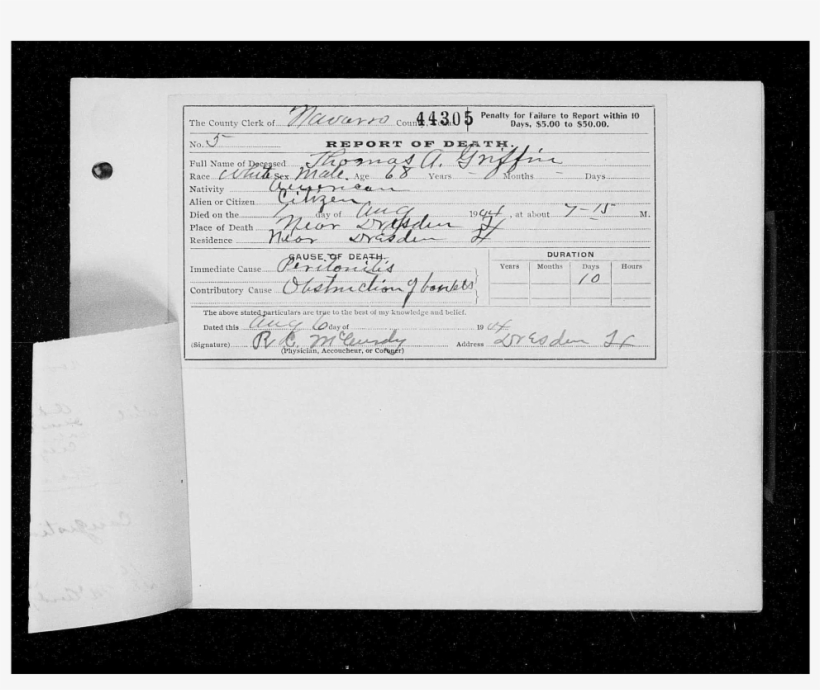 The County Clerk of Navarro County, 44305 Penalty for Failure to Report within 10
Days, $5.00 to $50.00.
No. 5
REPORT OF DEATH.
Full Name of Deceased Thomas A. Griffin
Race White Sex Male. Age 68 Years – Months – Days
Nativity American
Alien or Citizen Citizen
Died on the day of Aug 190 , at about 7-15 M.
Place of Death Near Dresden Tx
Residence Near Dresden Tx
CAUSE OF DEATH. DURATION
Immediate Cause Peritonitis Years Months Days Hours
Contributory Cause Obstruction of bowels 10
The above stated particulars are true to the best of my knowledge and belief.
Dated this Aug 6 day of 190
(Signature) McCurdy Address Dresden Tx
(Physician, Accoucheur, or Coroner)